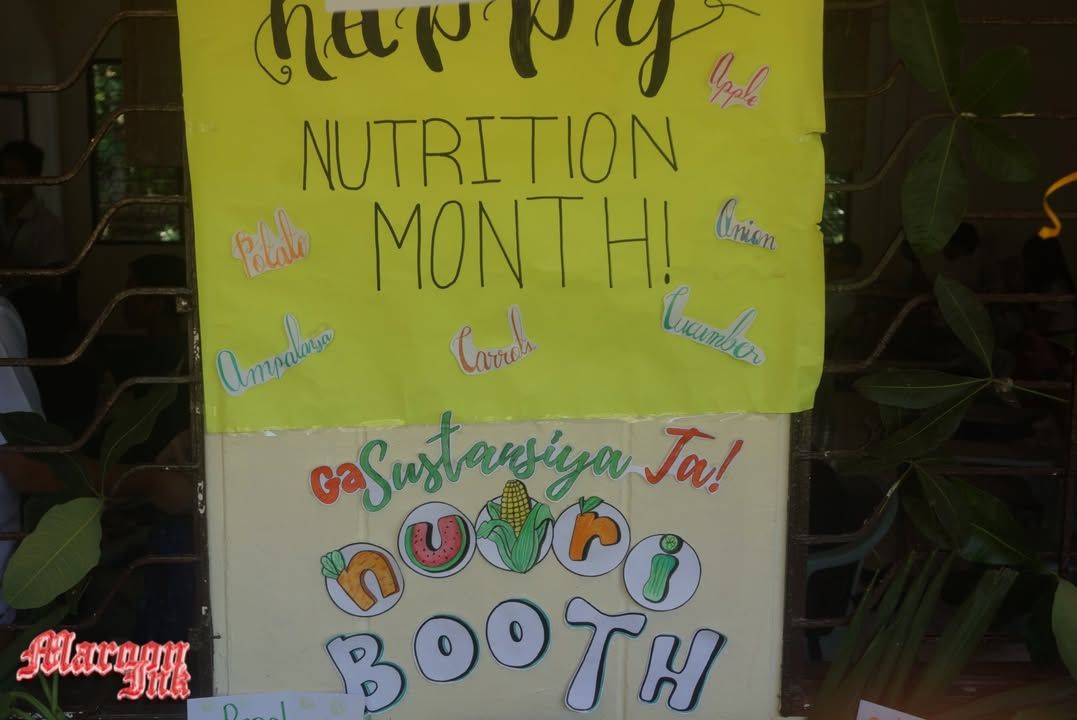 happy
Apple
NUTRITION
MONTH!
Potato
Onion
Ampalaya
Carrots
Cucumber
GaSustansiya Ta!
nutri
BOOTH
Maroon
Ink